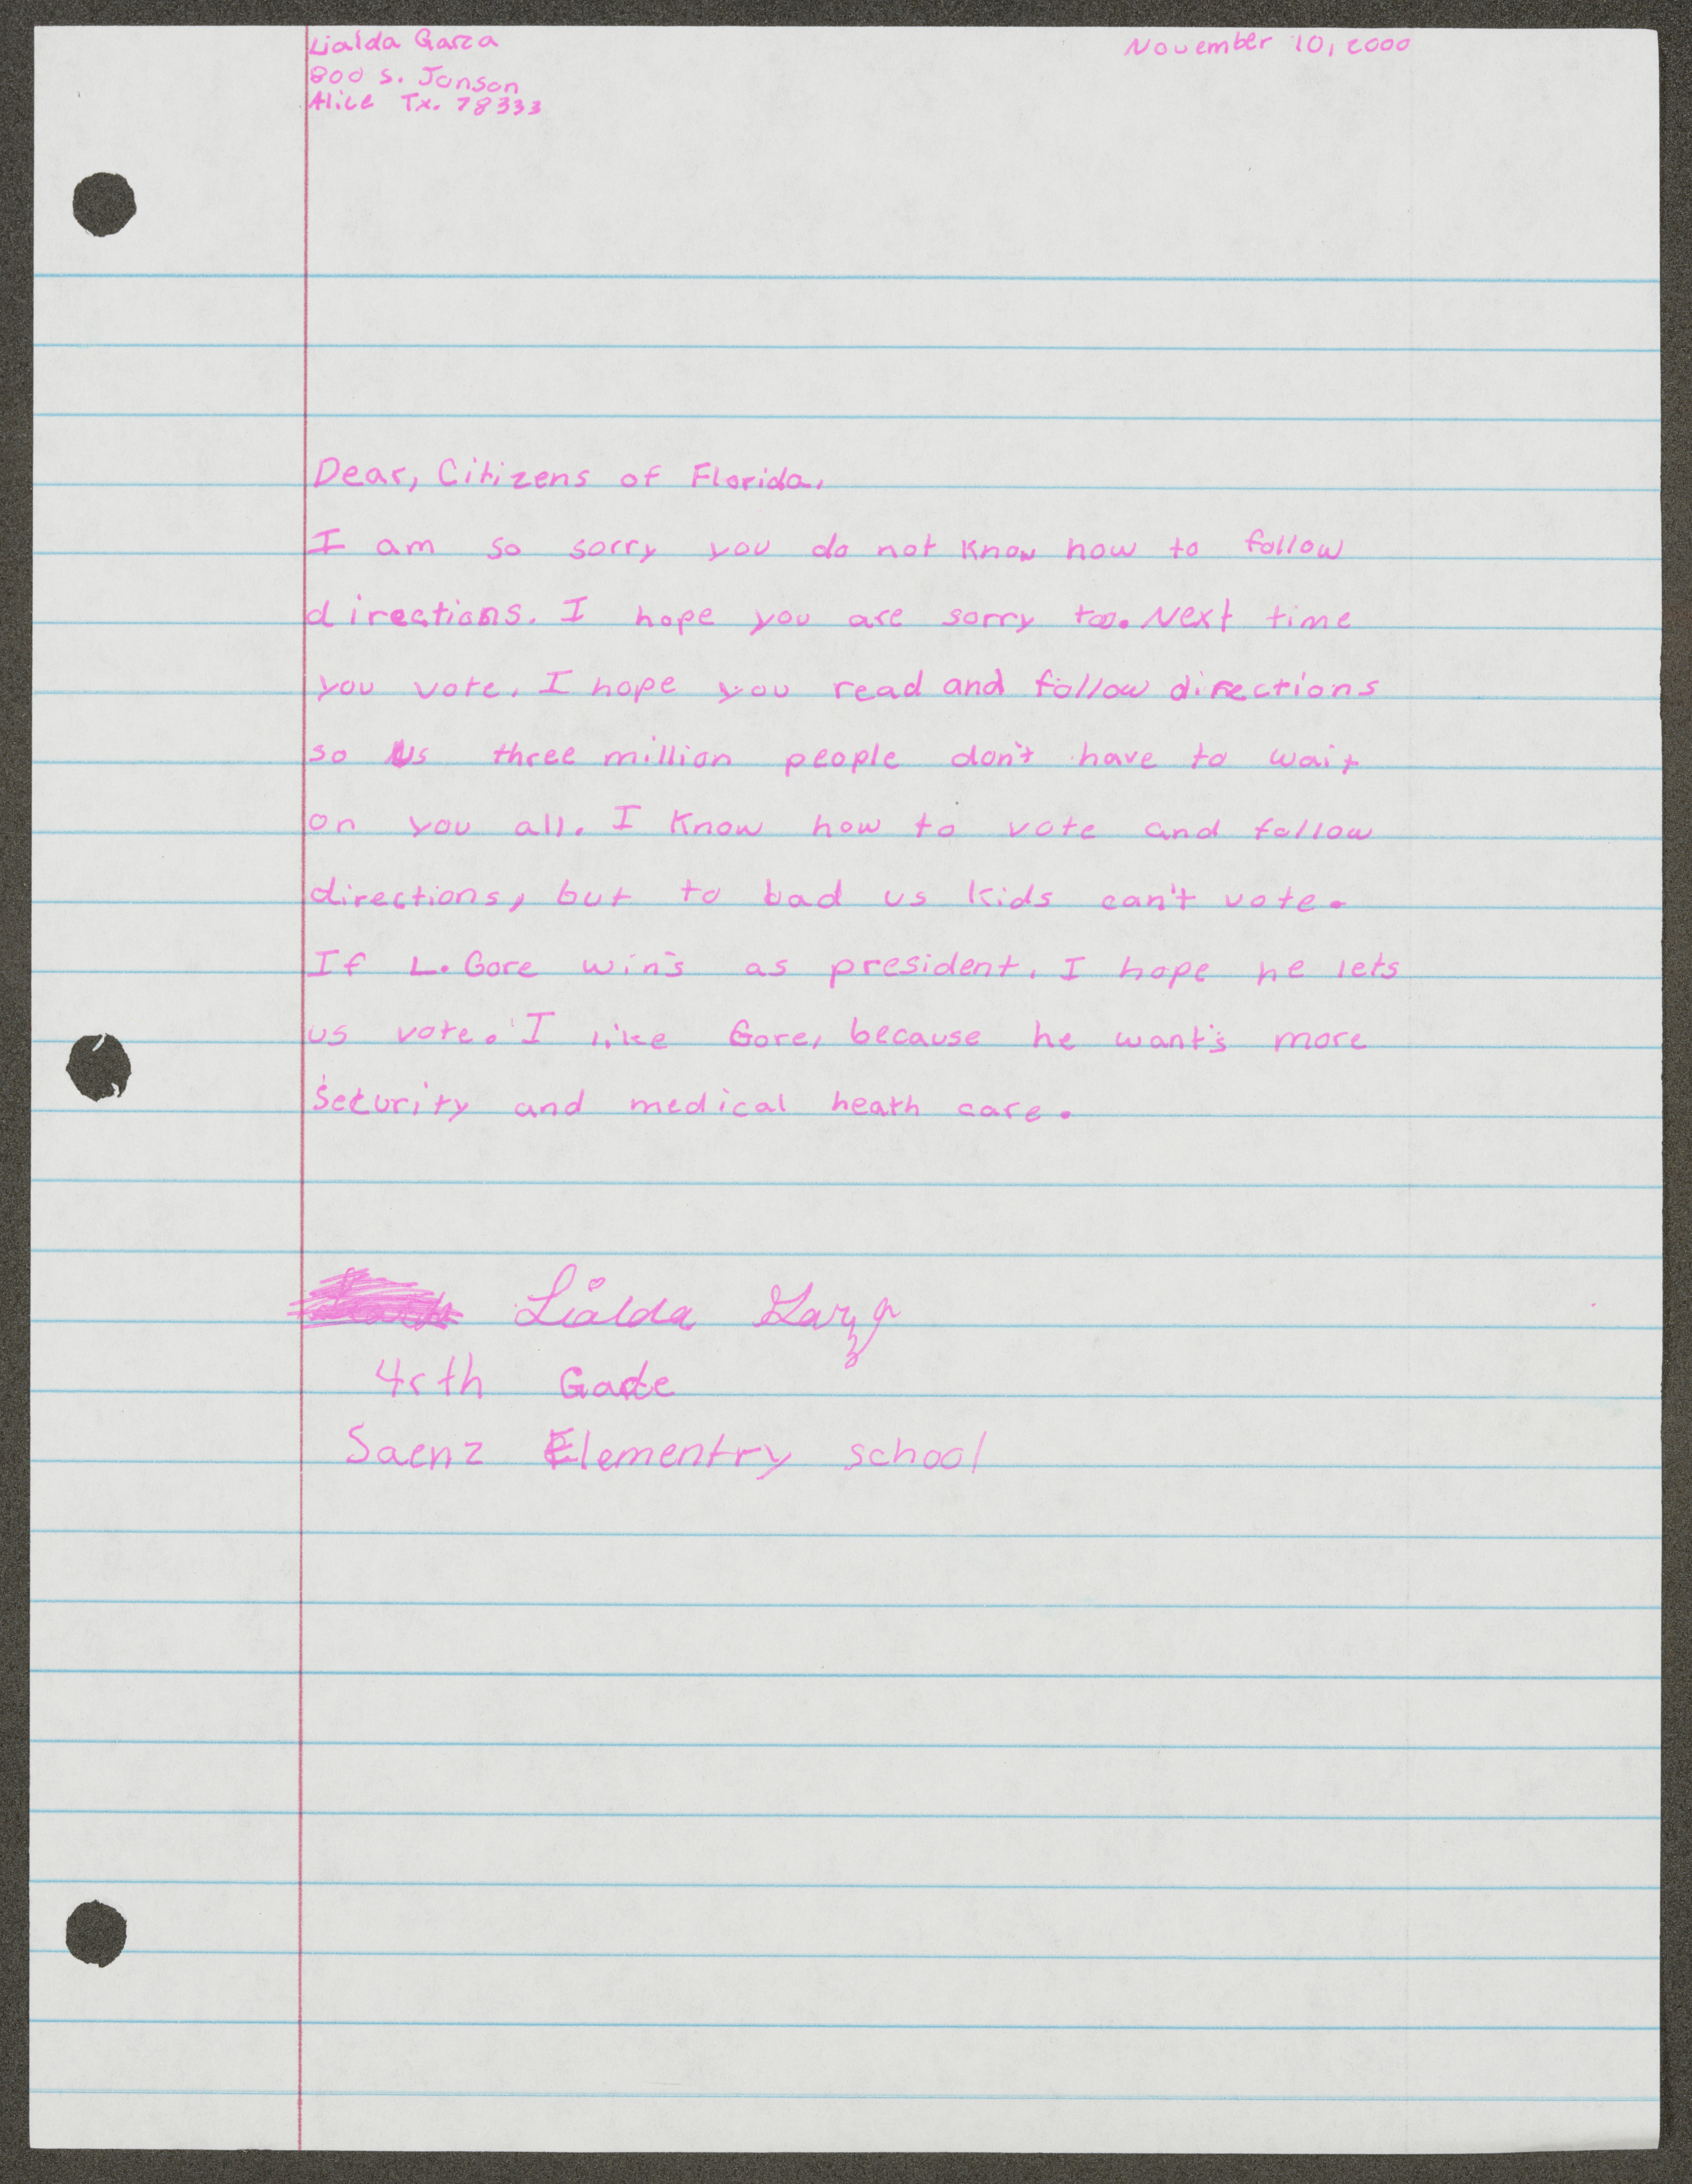 Lialda Garza
November 10, 2000
800 S. Jonson
Alice Tx. 78333
Dear, Citizens of Florida,
I am so sorry you do not know how to follow
directions. I hope you are sorry too. Next time
you vote, I hope you read and follow directions
so us three million people don't have to wait
on you all. I know how to vote and follow
directions, but to bad us kids can't vote.
If L. Gore win's as president, I hope he lets
us vote. I like Gore, because he want's more
security and medical heath care.
Lialda Garza
4rth Gade
Saenz Elementry school